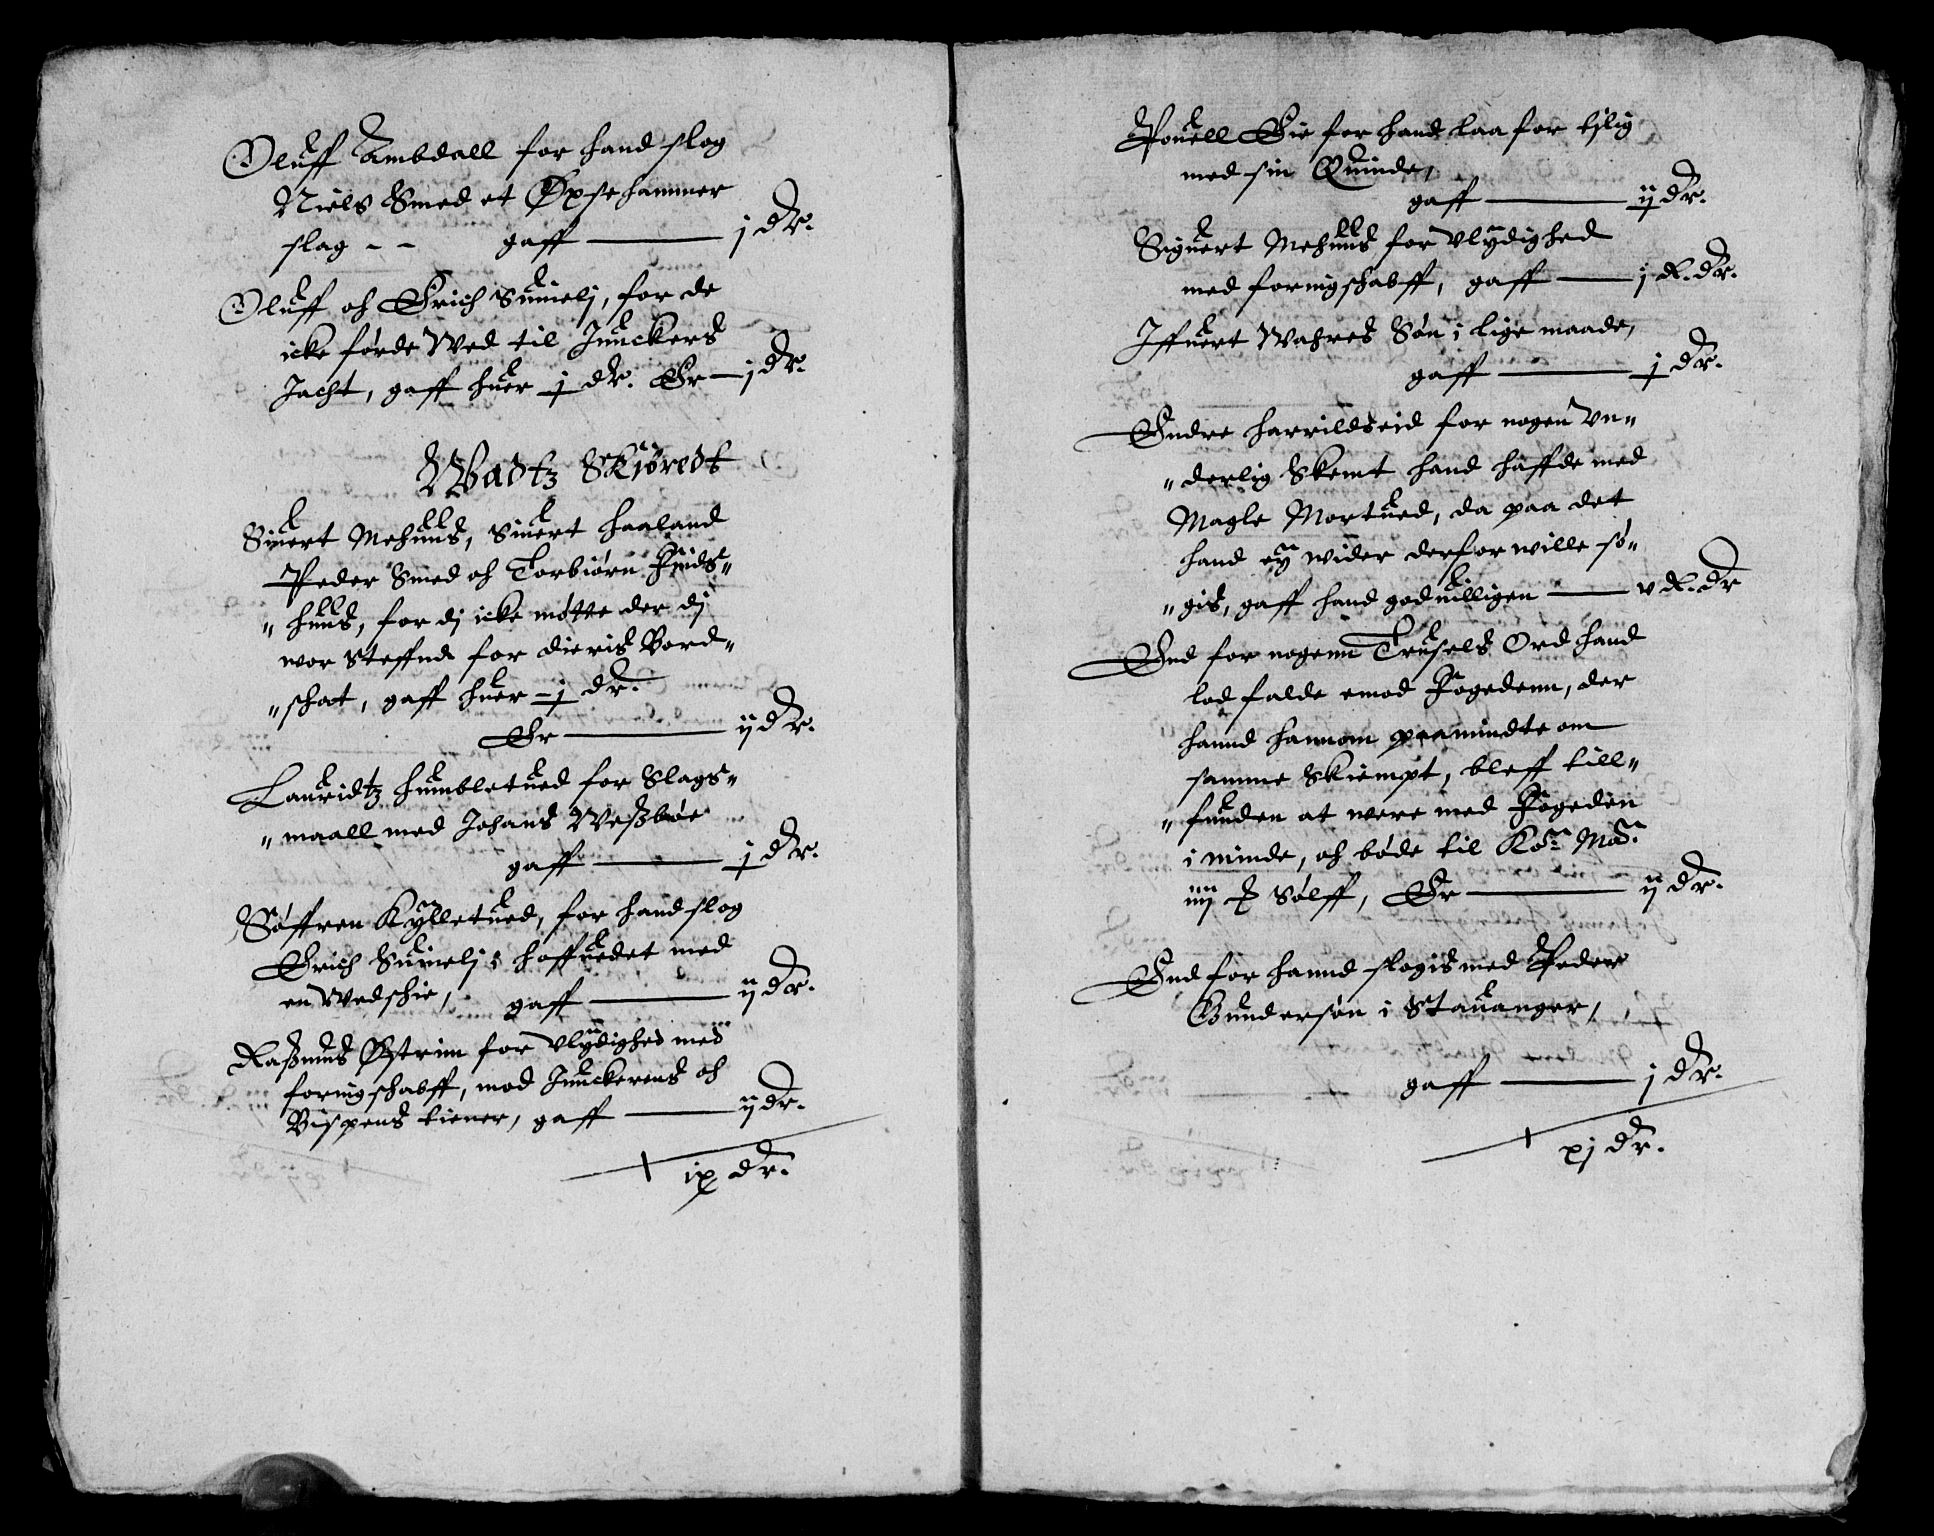 Oluff Ambdall for hand slog
Niels Smed et Øxsehammer
slag - - gaff — j dr.
Oluff och Erich Suinelj, for de
icke førde Wed til Junckers
Jacht, gaff huer j dr. Er — j dr.
Wadtz Skiøredt
Siuert Mehuus, Siuert Haaland
Peder Smed och Torbiørn Huids-
"huus, for dj icke møtte der dj
wor steffnd for dieris Bord-
"schat, gaff huer - j dr.
Er — ij dr.
Lauridtz Humbletued for Slags-
"maall med Johans Wessbøe
gaff — j dr.
Søffren Kylletued, for hand slog
Erich Suinelj i hoffuedet med
en Wedschie, gaff — ij dr.
Rasmus Østrim for Vlydighed med
foringschabff, mod Junckerens och
Bispens tiener, gaff — ij dr.
ix dr.
Pouell Eie for hand laa for tjlig
med sin Quinde,
gaff — ij dr.
Siguert Mehuus for Vlydighed
med foringschabff, gaff — j R. dr.
Iffuert Wahres Søn i lige maade,
gaff — j dr.
Endre Harrildseid for nogen Vn-
"derlig Skemt hand haffde med
Magle Mortued, da paa det
hand ey wider derfor wille sø-
"gis, gaff hand goduilligen — v R. dr
End for nogenn Trusels Ord hand
lod falde emod Fogedenn, der
hannd hannom paamindte om
samme Skiempt, bleff till-
"funden at were med Fogeden
i minde, och bøde til Ko: Ma:
iiij ℔ Sølff, Er — ij dr.
End for hannd slogis med Peder
Gundersøn i Stauanger,
gaff — j dr.
xj dr.